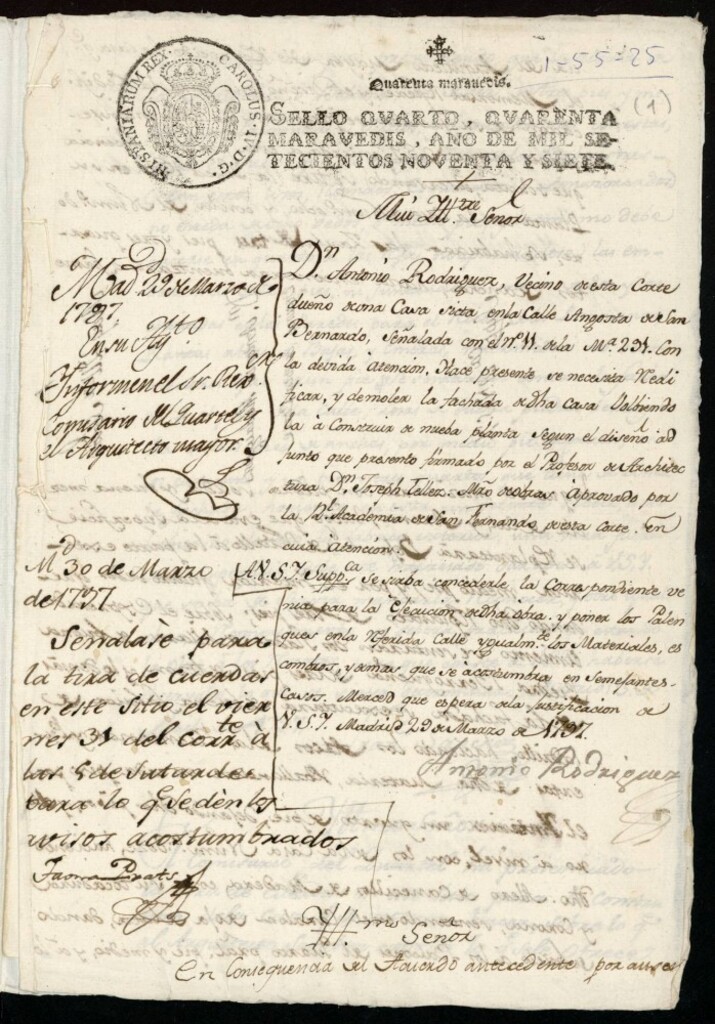 HISPANIARUM REX. CAROLUS. IV. D. G.
1-55-25
Quarenta maravedis.
(1)
SELLO QVARTO, QVARENTA
MARAVEDIS, AÑO DE MIL SE-
TECIENTOS NOVENTA Y SIETE.
Mui Ill.tre Señor
Dn Antonio Rodriguez, Vecino de esta Corte
dueño de una Casa Sita, en la Calle Angosta de San
Bernardo, Señalada con el nº 11. de la Mª 291. Con
la devida Atención, Hace presente se necesita Redi
ficar, y demoler la fachada de dha Casa Volbiendo
la à Construir de nueba planta segun el diseño ad
junto que presento firmado por el Profesor de Architec
tura Dn Joseph Tellez. Mro de obras aprovado por
la Rl Académia de San Fernando, de esta Corte. En
cuia Atencion.
A V.S.I. Suppca Se sirba concederle la Correspondiente ve
nia para la Ejecucion de dha obra, y poner los Palen
ques en la Referida Calle ygualmte los Materiales, es
combros, y demas que se acostumbra en Semejantes
Casos. Merced que espera de la Justificacion de
V.S.I. Madrid 29 de Marzo de 1797.
Antonio Rodriguez
Mad 29 de Marzo de
1797
En su Ayto
Informen el Sr. Rexor
Comisario del Quartel y
el Arquitecto mayor.
Md 30 de Marzo
de 1797
Señalase para
la tira de cuerdas
en este Sitio el vier
nes 31 del corrte à
las 5 de su tarde
para lo q. se dèn los
avisos acostumbrados
Prats
Ill.mo Señor
En Consequencia del Acuerdo antecedente por